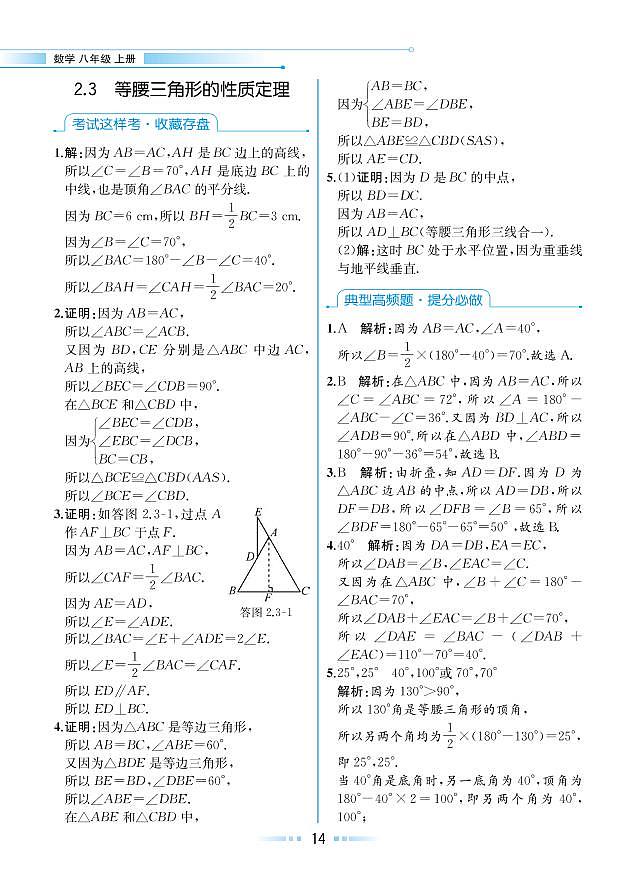 数学 八年级 上册
2.3 等腰三角形的性质定理
考试这样考·收藏存盘
1.解:因为 AB=AC,AH 是 BC 边上的高线,
所以∠C=∠B=70°,AH 是底边 BC 上的
中线,也是顶角∠BAC 的平分线.
因为 BC=6 cm,所以 BH=1/2BC=3 cm.
因为∠B=∠C=70°,
所以∠BAC=180°-∠B-∠C=40°.
所以∠BAH=∠CAH=1/2∠BAC=20°.
2.证明:因为 AB=AC,
所以∠ABC=∠ACB.
又因为 BD,CE 分别是△ABC 中边 AC,
AB 上的高线,
所以∠BEC=∠CDB=90°.
在△BCE 和△CBD 中,
∠BEC=∠CDB,
因为{∠EBC=∠DCB,
BC=CB,
所以△BCE≌△CBD(AAS).
所以∠BCE=∠CBD.
3.证明:如答图 2.3-1,过点 A
作 AF⊥BC 于点 F.
因为 AB=AC,AF⊥BC,
所以∠CAF=1/2∠BAC.
因为 AE=AD,
所以∠E=∠ADE.
所以∠BAC=∠E+∠ADE=2∠E.
所以∠E=1/2∠BAC=∠CAF.
所以 ED∥AF.
所以 ED⊥BC.
E
A
D
B
F
C
答图 2.3-1
4.证明:因为△ABC 是等边三角形,
所以 AB=BC,∠ABE=60°.
又因为△BDE 是等边三角形,
所以 BE=BD,∠DBE=60°,
所以∠ABE=∠DBE.
在△ABE 和△CBD 中,
AB=BC,
因为{∠ABE=∠DBE,
BE=BD,
所以△ABE≌△CBD(SAS),
所以 AE=CD.
5.(1)证明:因为 D 是 BC 的中点,
所以 BD=DC.
因为 AB=AC,
所以 AD⊥BC(等腰三角形三线合一).
(2)解:这时 BC 处于水平位置,因为重垂线
与地平线垂直.
典型高频题·提分必做
1.A 解析:因为 AB=AC,∠A=40°,
所以∠B=1/2×(180°-40°)=70°.故选 A.
2.B 解析:在△ABC 中,因为 AB=AC,所以
∠C=∠ABC=72°,所以∠A=180°-
∠ABC-∠C=36°.又因为 BD⊥AC,所以
∠ADB=90°.所以在△ABD 中,∠ABD=
180°-90°-36°=54°,故选 B.
3.B 解析:由折叠,知 AD=DF.因为 D 为
△ABC 边 AB 的中点,所以 AD=DB,所以
DF=DB,所以∠DFB=∠B=65°,所以
∠BDF=180°-65°-65°=50°,故选 B.
4.40° 解析:因为 DA=DB,EA=EC,
所以∠DAB=∠B,∠EAC=∠C.
又因为在△ABC 中,∠B+∠C=180°-
∠BAC=70°,
所以∠DAB+∠EAC=∠B+∠C=70°,
所以∠DAE=∠BAC-(∠DAB+
∠EAC)=110°-70°=40°.
5.25°,25° 40°,100°或 70°,70°
解析:因为 130°>90°,
所以 130°角是等腰三角形的顶角,
所以另两个角均为1/2×(180°-130°)=25°,
即 25°,25°.
当 40°角是底角时,另一底角为 40°,顶角为
180°-40°×2=100°,即另两个角为 40°,
100°;
14